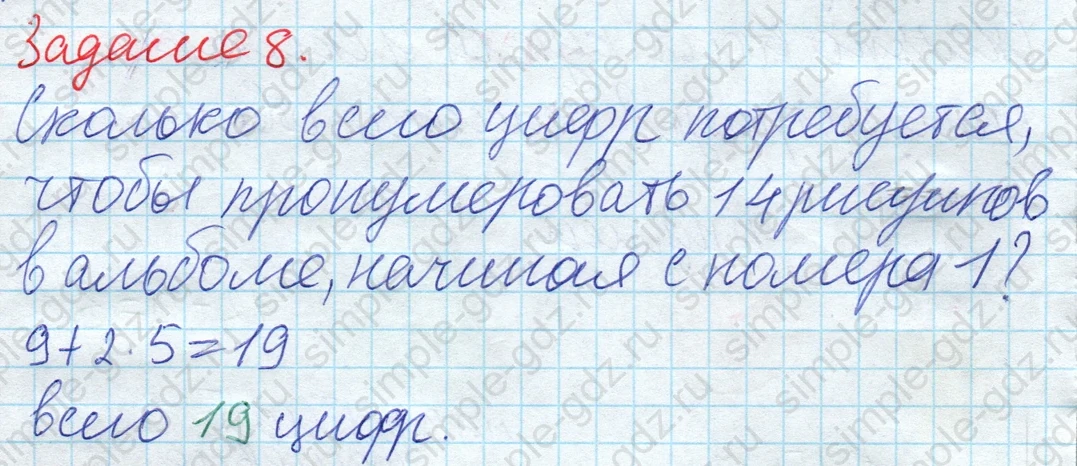 Задание 8.
Сколько всего цифр потребуется,
чтобы пронумеровать 14 рисунков
в альбоме, начиная с номера 1?
9+2·5=19
всего 19 цифр.
simple-gdz.ru